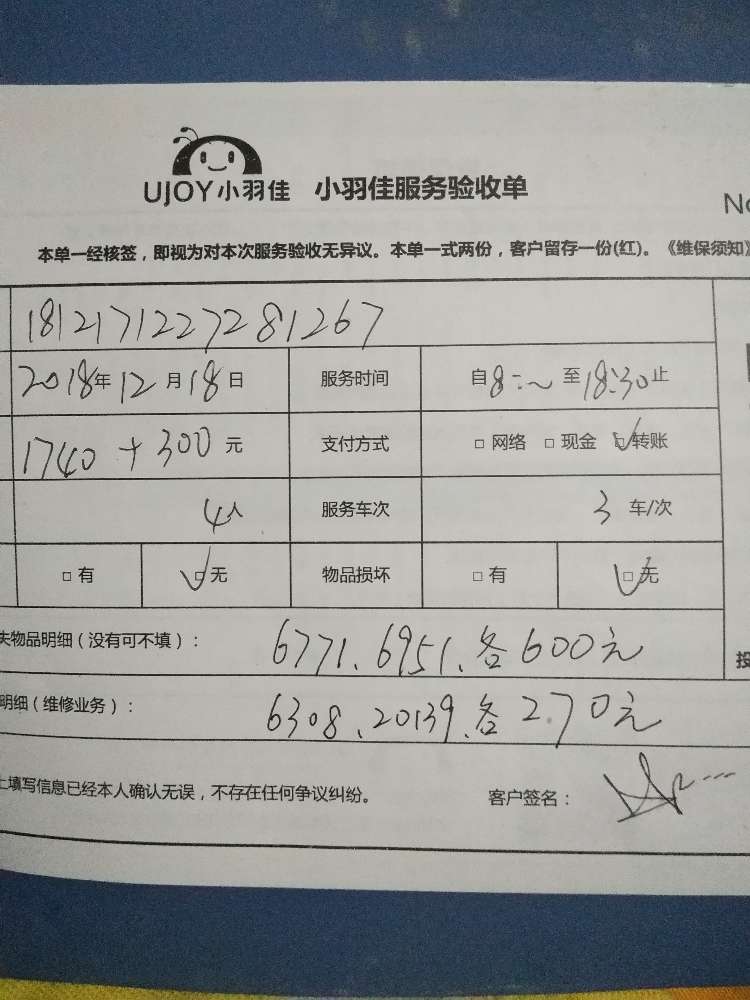 UJOY小羽佳 小羽佳服务验收单
No
本单一经核签，即视为对本次服务验收无异议。本单一式两份，客户留存一份(红)。《维保须知》
181217122728 1267
2018年12月18日 服务时间 自8:~至18:30止
1740+300元 支付方式 □网络 □现金 □转账
4人 服务车次 3车/次
□有 □无 物品损坏 □有 □无
失物品明细（没有可不填）： 6771、6951、各600元
投
明细（维修业务）： 6308、20139、各270元
上填写信息已经本人确认无误，不存在任何争议纠纷。 客户签名：